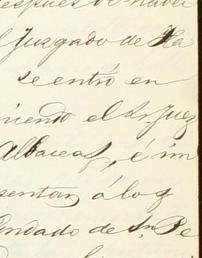 espues de haver
l Juzgado de Ha
se entró en
niendo el Sr. Juez
Albaceas, é im
sentar, á los
ondado de Sn. Pe